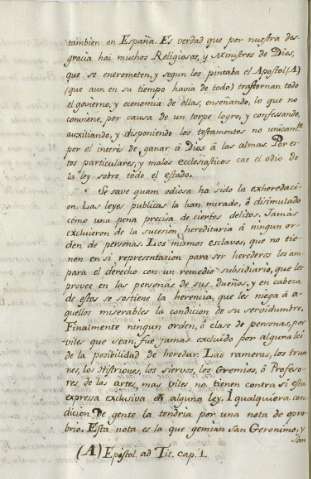 tambien en España. Es verdad que por nuestra des-
gracia hai muchos Religiosos, y Ministros de Dios,
que se entrometen, y segun los pintaba el Apostol (A)
(que aun en su tiempo havia de todo) trastornan todo
el govierno, y economia de ellas, enseñando, lo que no
conviene, por causa de un torpe logro, y confessando,
auxiliando, y disponiendo los testamentos no
por el interés de ganar á Dios á las almas. Por es-
tos particulares, y malos eclesiasticos cae el odio de
la ley sobre todo el estado.
Se save quam odiosa ha sido la exheredaci-
on. Las leyes publicas la han mirado, ó disimulado
como una pena precisa de ciertos delitos. Jamás
excluieron de la sucesion hereditaria á ningun or-
den de personas. Los mismos esclavos, que no tie-
nen en sí representacion para ser herederos los am-
para el derecho con un remedio subsidiario, que les
provee en las personas de sus dueños, y en cabeza
de estos se sostiene la herencia, que les niega á a-
quellos miserables la condicion de su servidumbre.
Finalmente ningun orden, ó clase de personas, por
viles que sean fué jamas excluido por alguna lei
de la posibilidad de heredar. Las rameras, los trua-
nes, los Histriones, los siervos, los Gremios, ó Profeso-
res de las artes mas viles no tienen contra sí esta
expresa exclusiva en alguna ley. I qualquiera con-
dicion de gente la tendria por una nota de opro-
brio. Esta nota es la que gemian San Geronimo, y
San
(A) Epistol. ad Tit. cap. 1.